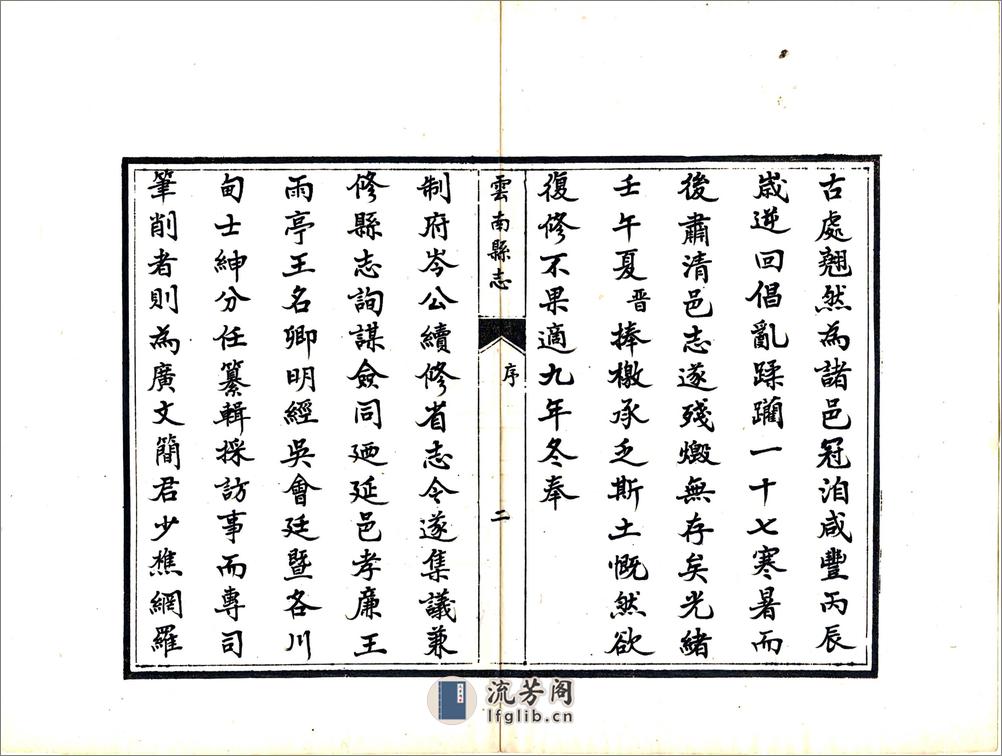 古處翹然為諸邑冠洎咸豐丙辰
歲逆回倡亂蹂躪一十七寒暑而
後肅清邑志遂殘燬無存矣光緒
壬午夏晋捧檄承乏斯土慨然欲
復修不果適九年冬奉
雲南縣志 序 二
制府岑公續修省志令遂集議兼
修縣志詢謀僉同廼延邑孝廉王
雨亭王名卿明經吳會廷暨各川
甸士紳分任纂輯採訪事而專司
筆削者則為廣文簡君少樵網羅
流芳阁
lfglib.cn